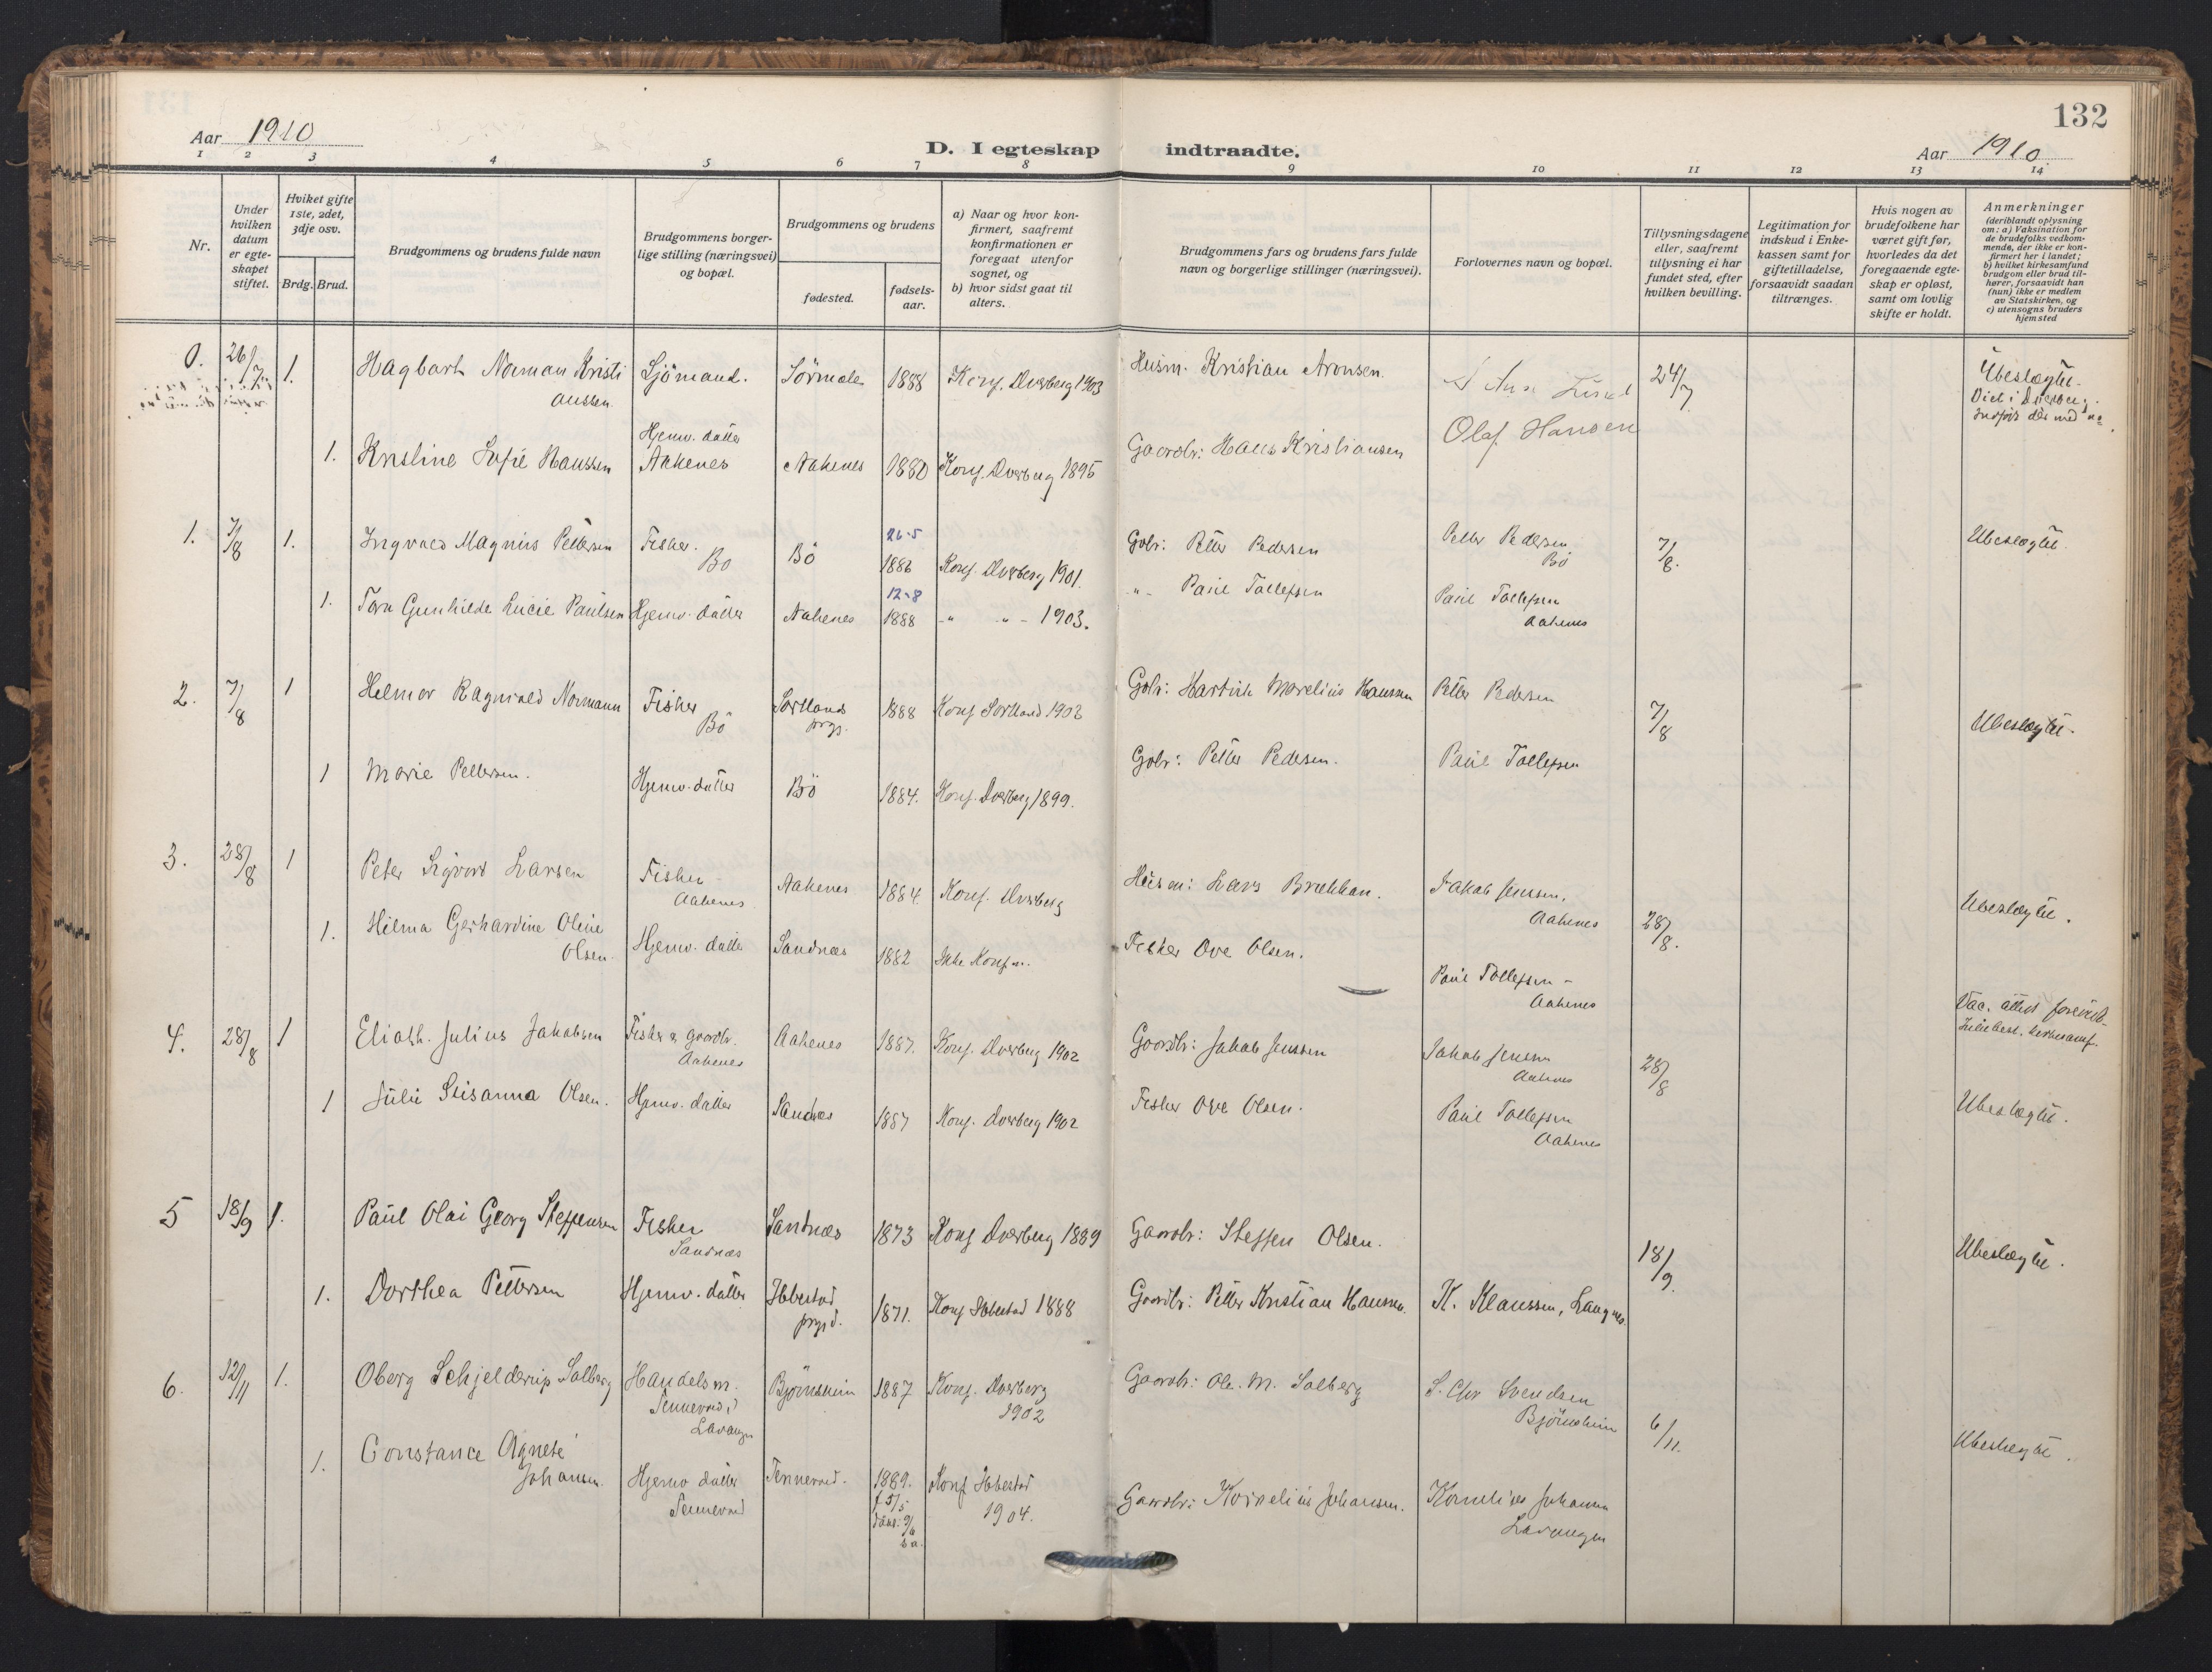 132
Aar 1910
D. I egteskap indtraadte.
Aar 1910.
1 2 3 4 5 6 7 8 9 10 11 12 13 14
Nr.
Under hvilken datum er egteskapet stiftet.
Hviket gifte 1ste, 2det, 3dje osv.
Brdg. Brud.
Brudgommens og brudens fulde navn
Brudgommens borgerlige stilling (næringsvei) og bopæl.
Brudgommens og brudens
fødested.
fødselsaar.
a) Naar og hvor konfirmert, saafremt konfirmationen er foregaat utenfor sognet, og
b) hvor sidst gaat til alters.
Brudgommens fars og brudens fars fulde navn og borgerlige stillinger (næringsvei).
Forlovernes navn og bopæl.
Tillysningsdagene eller, saafremt tillysning ei har fundet sted, efter hvilken bevilling.
Legitimation for indskud i Enkekassen samt for giftetilladelse, forsaavidt saadan tiltrænges.
Hvis nogen av brudefolkene har været gift før, hvorledes da det foregaaende egteskap er opløst, samt om lovlig skifte er holdt.
Anmerkninger
(deriblandt oplysning om: a) Vaksination for de brudefolks vedkommende, der ikke er konfirmert her i landet;
b) hvilket kirkesamfund brudgom eller brud tilhører, forsaavidt han (hun) ikke er medlem av Statskirken, og
c) utensogns bruders hjemsted
0. 26/7 1. Hagbart Norman Kristi Sjömand. 1888 Konf. Dverberg 1903 Husm. Kristian Aronsen. 24/7 Ubeslægtet.
anssen.
Viet i Dverberg.
1. Kristine Sofie Hanssen Hjemv. datter Aakenes Aakenes 1880 Konf. Dverberg 1895 Gaardbr: Hans Kristiansen Olaf Hansen
1. 7/8 1. Ingvald Magnus Pettersen Fisker. Bö Bö 26-5 1886 Konf. Dverberg 1901. Gbr: Petter Pedersen Petter Pedersen Bö 7/8. Ubeslægtet.
1. Tora Gunhilde Lucie Paulsen Hjemv. datter Aakenes 12-8 1888 -"- -"- 1903. "- Paul Tollefsen Paul Tollefsen Aakenes
2. 7/8 1 Helmer Ragnvald Normann Fisker Bö Sortlands prgj. 1888 Konf Sortland 1903 Gbr: Hartvik Marelius Hanssen Petter Pedersen 7/8 Ubeslægtet.
1 Marie Pettersen. Hjemv. datter Bö 1884. Konf. Dverberg 1899. Gbr: Petter Pedersen. Paul Tollefsen
3. 28/8 1 Peter Sigvart Larsen Fisker Aakenes Aakenes 1884 Konf. Dverberg Husm: Lars Jakob Jenssen. Aakenes 28/8. Ubeslægtet.
1. Hilma Gerhardine Oline Olsen. Hjemv. datter Sandnæs 1882 Ikke Konf. Fisker Ove Olsen. Paul Tollefsen - Aakenes
Vac. attest forevist
4. 28/8 1 Eliath. Julius Jakobsen Fisker & gaardbr. Aakenes Aakenes 1887. Konf. Dverberg 1902 Gaardbr: Jakob Jenssen Jakob Jensen Aakenes 28/8
1 Julie Susanna Olsen. Hjemv. datter Sandnes 1887 Konf. Dverberg 1902 Fisker Ove Olsen. Paul Tollefsen Aakenes Ubeslægtet.
5 18/9 1. Paul Olai Georg Steffensen Fisker Sandnæs Sandnæs 1873 Konf Dverberg 1889 Gaardbr: Steffen Olsen. 18/9. Ubeslægtet.
1. Dorthea Pettersen Hjemv. datter Ibbestad prgjd. 1871. Konf Ibbestad 1888 Gaardbr: Petter Kristian Hansen. K. Klaussen, Langnes.
6. 12/11 1. Oberg Schjelderup Solberg Handelsm. Tennevoll, i Lavangen Bjørnsheim 1887 Konf. Dverberg 1902 Gaardbr: Ole. M. Solberg S. Chr Svendsen Bjørnsheim 6/11. Ubeslægtet.
1. Constance Agnete Johansen. Hjemv datter Tennevoll Tennevoll. 1889. f 5/5 Konf Ibbestad 1904. Gaardbr: Kornelius Johansen. Kornelius Johansen Lavangen